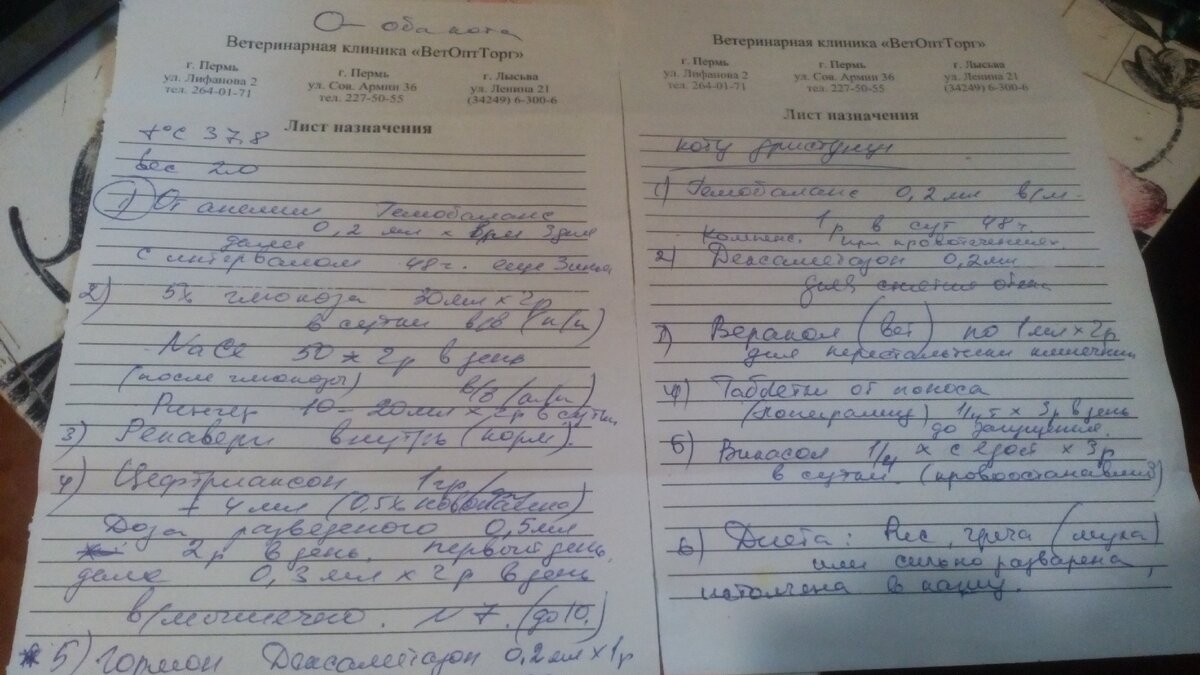 оба кота
Ветеринарная клиника «ВетОптТорг»
г. Пермь
ул. Лифанова 2
тел. 264-01-71
г. Пермь
ул. Сов. Армии 36
тел. 227-50-55
г. Лысьва
ул. Ленина 21
(34249) 6-300-6
Лист назначения
t°C 37,8
вес 2.0
1) От анемии Гемобаланс
0,2 мл x 3 дня
далее
с интервалом 48 ч. еще
2) 5% глюкоза 30 мл x 2р
в сутки в/в (п/к)
NaCl 50 x 2р в день
(после глюкозы) в/в (п/к)
Рингер 10-20 мл x 2р в сутки
3) Рекавери внутрь (корм).
4) Цефтриаксон 1 гр
+ 4 мл (0,5% новокаина)
Доза разведеного 0,5 мл
2р в день, первый день
далее 0,3 мл x 2р в день
в/мышечно. N 7. (до 10.)
5) Гормон Дексаметазон 0,2 мл x 1р
Ветеринарная клиника «ВетОптТорг»
г. Пермь
ул. Лифанова 2
тел. 264-01-71
г. Пермь
ул. Сов. Армии 36
тел. 227-50-55
г. Лысьва
ул. Ленина 21
(34249) 6-300-6
Лист назначения
коту
1) Гемобаланс 0,2 мл в/м.
1р в сут 48 ч.
Компенс. при кровотечениях
2) Дексаметазон 0,2 мл
для снятия
3) Веракол (вет) по 1 мл x 2р
для перестальтики кишечника
4) Таблетки от поноса
(Лоперамид) x 3р в день
до загущения.
5) Викасол 1/4 x с едой x 3р
в сутки (кровоостанавлив)
6) Диета: Рис, греча (мука)
или сильно разварена,
истолчена в кашу.